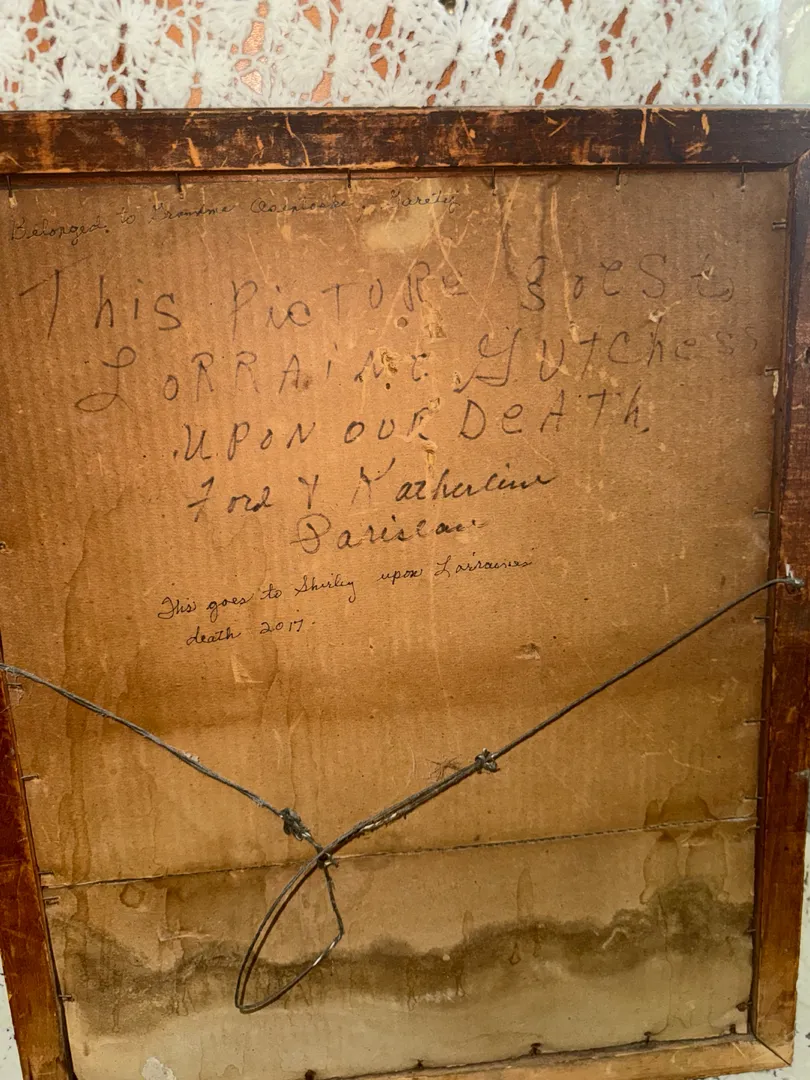 Belonged to Grandma
This PicTURe goes to
LORRAINe GUTChess
UPON OUR DeATh
Ford & Katherine
Pariseau
This goes to Shirley upon Lorraines
death 2017.